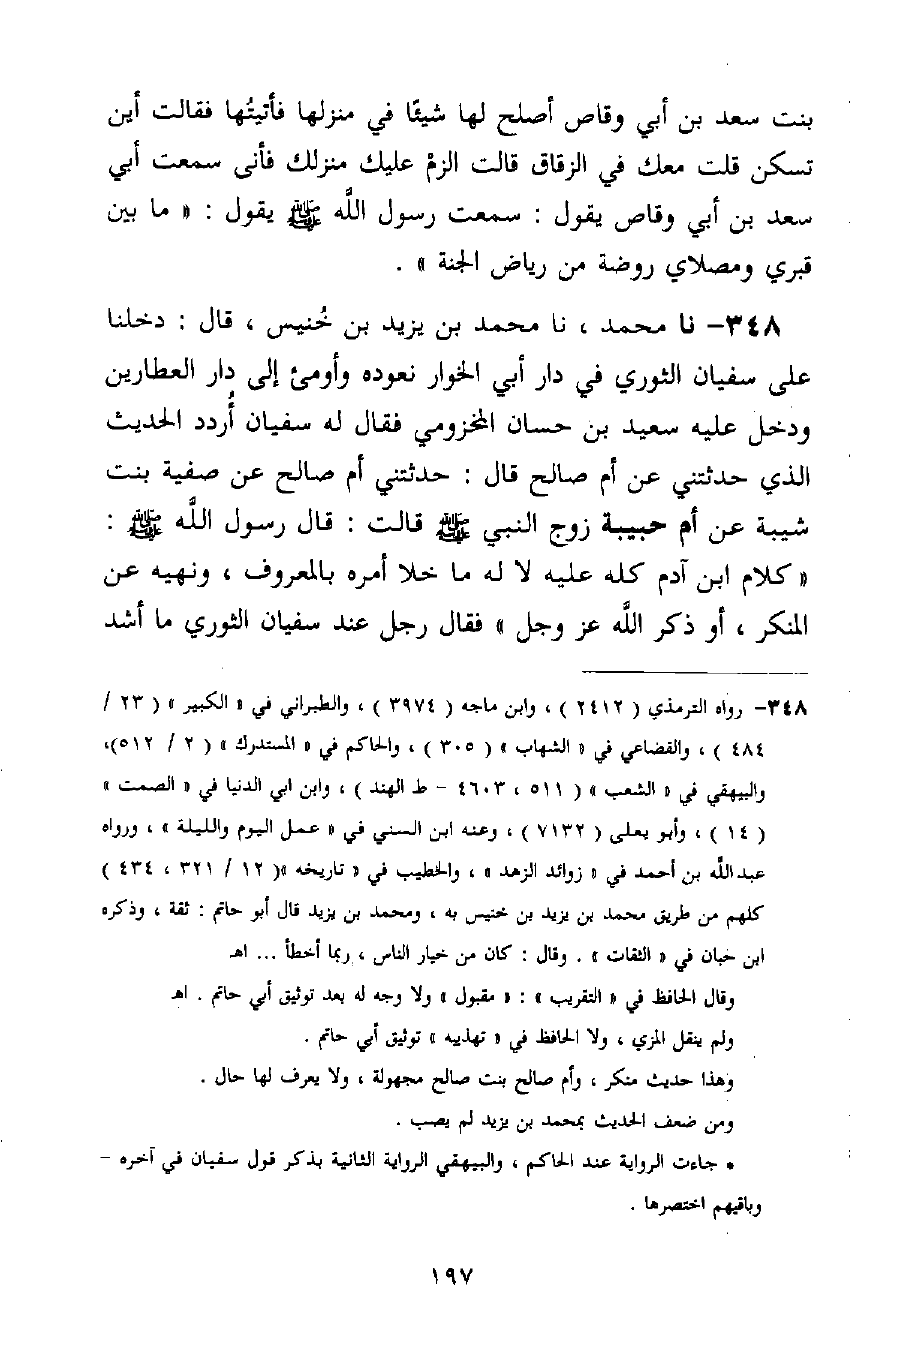 بنت سعد بن أبي وقاص أصلح لها شيئًا في منزلها فأتيتُها فقالت أين
تسكن قلت معك في الزقاق قالت الزمْ عليك منزلك فأنى سمعت أبي
سعد بن أبي وقاص يقول : سمعت رسول اللَّه ﷺ يقول : « ما بين
قبري ومصلاي روضة من رياض الجنة » .
٣٤٨- نا محمد ، نا محمد بن يزيد بن خُنيس ، قال : دخلنا
على سفيان الثوري في دار أبي الخوار نعوده وأومئ إلى دار العطارين
ودخل عليه سعيد بن حسان المخزومي فقال له سفيان أُردد الحديث
الذي حدثتني عن أم صالح قال : حدثتني أم صالح عن صفية بنت
شيبة عن أم حبيبة زوج النبي ﷺ قالت : قال رسول اللَّه ﷺ :
« كلام ابن آدم كله عليه لا له ما خلا أمره بالمعروف ، ونهيه عن
المنكر ، أو ذكر اللَّه عز وجل » فقال رجل عند سفيان الثوري ما أشد
٣٤٨- رواه الترمذي ( ٢٤١٢ ) ، وابن ماجه ( ٣٩٧٤ ) ، والطبراني في « الكبير » ( ٢٣ /
٤٨٤ ) ، والقضاعي في « الشهاب » ( ٣٠٥ ) ، والحاكم في « المستدرك » ( ٢ / ٥١٢)،
والبيهقي في « الشعب » ( ٥١١ ، ٤٦٠٣ - ط الهند ) ، وابن ابي الدنيا في « الصمت »
( ١٤ ) ، وأبو يعلى ( ٧١٣٢ ) ، وعنه ابن السني في « عمل اليوم والليلة » ، ورواه
عبداللَّه بن أحمد في « زوائد الزهد » ، والخطيب في « تاريخه »( ١٢ / ٣٢١ ، ٤٣٤ )
كلهم من طريق محمد بن يزيد بن خنيس به ، ومحمد بن يزيد قال أبو حاتم : ثقة ، وذكره
ابن حبان في « الثقات » . وقال : كان من خيار الناس ، ربما أخطأ ... اهـ
وقال الحافظ في « التقريب » : « مقبول » ولا وجه له بعد توثيق أبي حاتم . اهـ
ولم ينقل المزي ، ولا الحافظ في « تهذيبه » توثيق أبي حاتم .
وهذا حديث منكر ، وأم صالح بنت صالح مجهولة ، ولا يعرف لها حال .
ومن ضعف الحديث بمحمد بن يزيد لم يصب .
* جاءت الرواية عند الحاكم ، والبيهقي الرواية الثانية بذكر قول سفيان في آخره -
وباقيهم اختصرها .
١٩٧